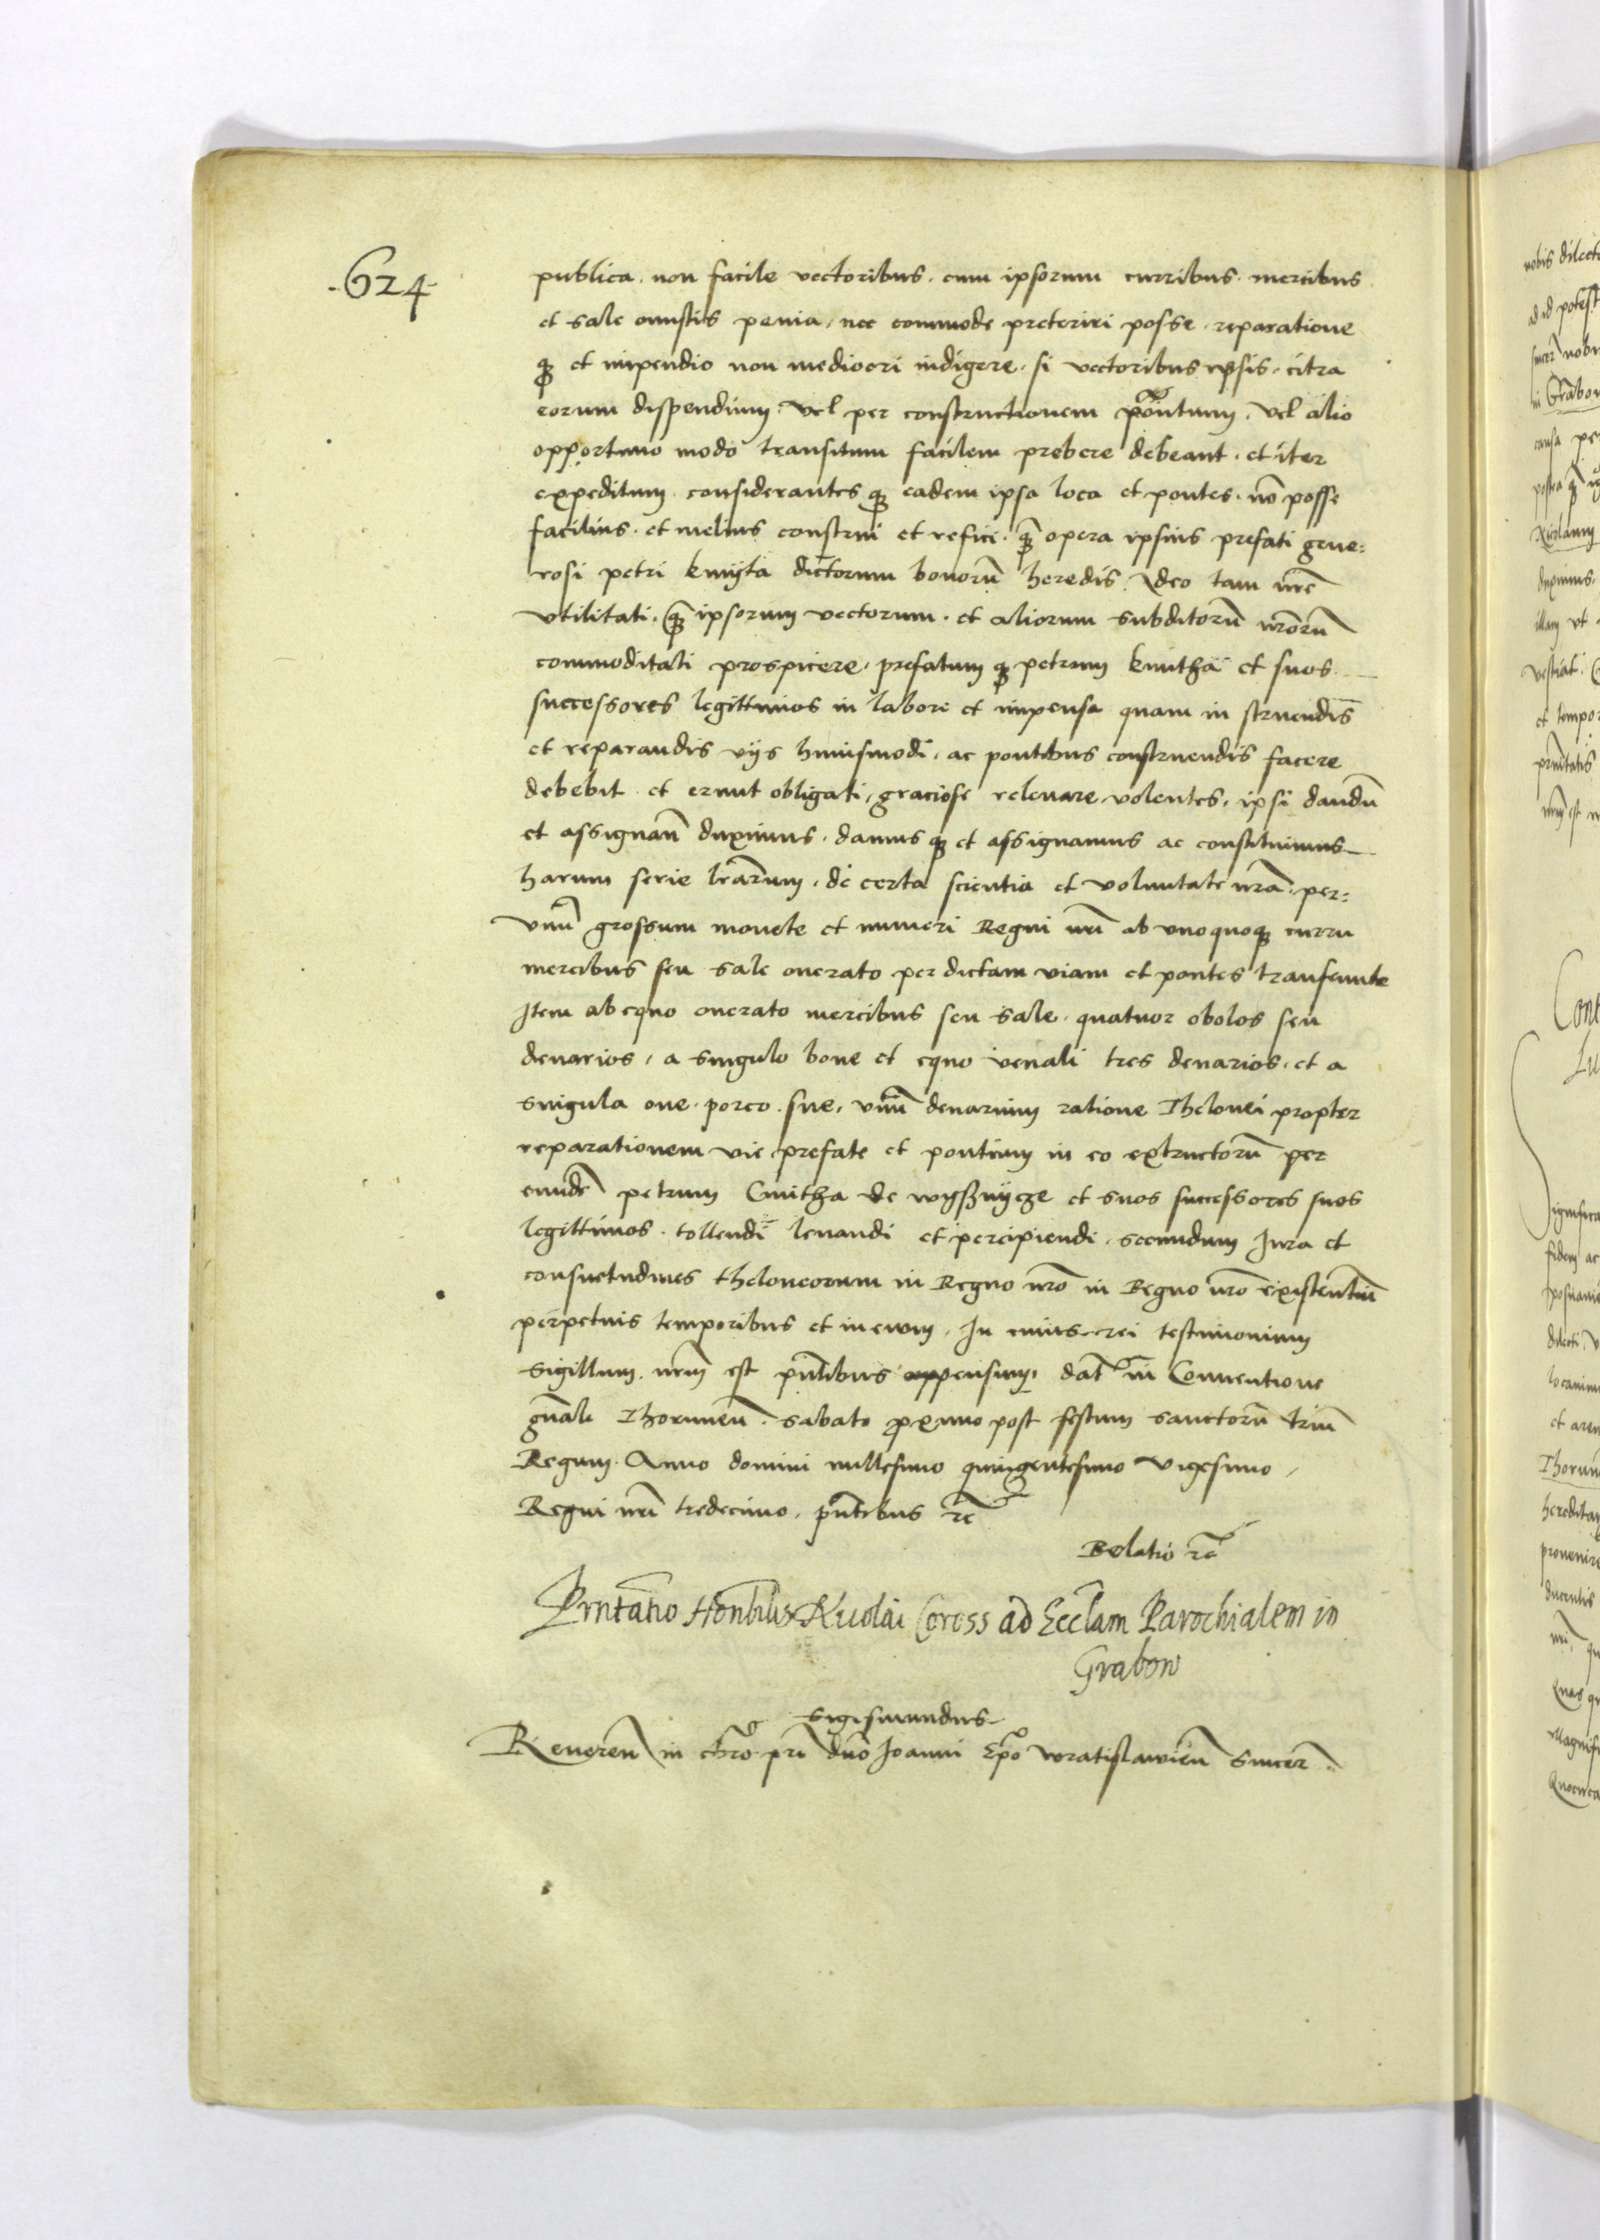 624
publica. non facile vectoribus. cum ipsorum curribus. mercibus
et sale onustis pervia. nec commode preteriri posse. reparatione
q3 et impendio non mediocri indigere. si vectoribus ipsis. citra
eorum dispendium. vel per constructionem pontium. vel alio
opportuno modo transitum facilem prebere debeant. et iter
expeditum. considerantes q3 eadem ipsa loca et pontes. nō posse
facilius. et melius construi et refici. q̄3 opera ipsius prefati gene:
rosi petri kmyta dictorum bonorū heredis. Ideo tam nr̄e
vtilitati. q̄3 ipsorum vectorum. et aliorum subditorū nr̄orū
commoditati prospicere. prefatum q3 petrum kmitha et suos
successores legittimos in labore et impensa quam in struendis
et reparandis vijs huiusmodi. ac pontibus construendis facere
debebit et erunt obligati, graciose relevare volentes, ipsi dandū
et assignan̄ duximus. damus q3 et assignamus ac constituimus
harum serie lr̄arum. de certa scientia et voluntate nr̄a. per:
vnū grossum monete et numeri Regni nr̄i ab vnoquoq3 curru
mercibus seu sale onerato per dictam viam et pontes transeunte
Item ab equo onerato mercibus seu sale. quatuor obolos seu
denarios. a singulo bove et equo venali tres denarios. et a
singula ove. porco. sue. vnū denarium ratione Thelonei propter
reparationem vie prefate et pontium in eo extructorū per
eundē petrum Cmitha de wyssnycze et suos successores suos
legittimos. tollendi levandi et percipiendi. secundum Jura et
consuetudines theloneorum in Regno nr̄o in Regno nr̄o existentiū
perpetuis temporibus et in evum. In cuius rei testimonium
sigillum. nr̄m est pn̄tibus appensum. dat in Conventione
gn̄ali Thorunen̄. sabato proximo post festum sanctorū triū
Regum. Anno domini millesimo quingentesimo vigesimo.
Regni nr̄i tredecimo. pn̄tibus rc̄
Relatio rc̄
Prn̄tatio Honbilis Nicolai Coross ad Eccl̄am Parochialem in
Grabow
Sigismundus
Reveren̄ in chr̄o pr̄i dn̄o Joanni Ep̄o wratislawien̄ sincer̄